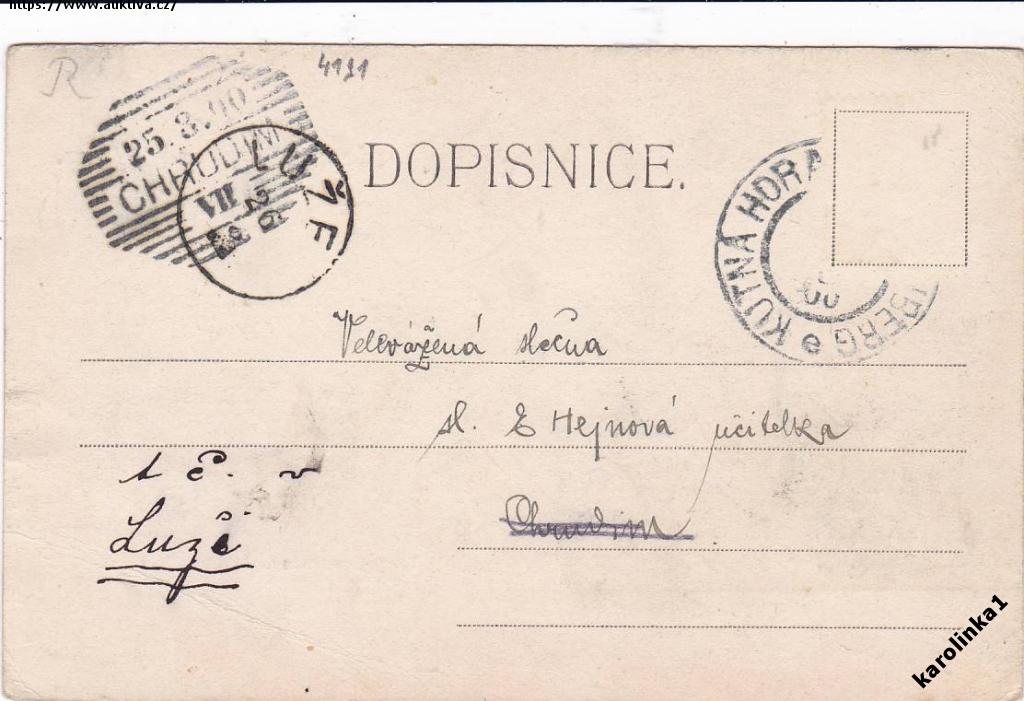 https://www.auktiva.cz/
R
4191
25.3.90
CHRUDIM
VII
LUŽE
26
DOPISNICE.
KUTNÁ HORA
BERG
00
Velevážená slečna
sl. E Hejnová učitelka
Chrudim
t č. v
Luži
karolinka1